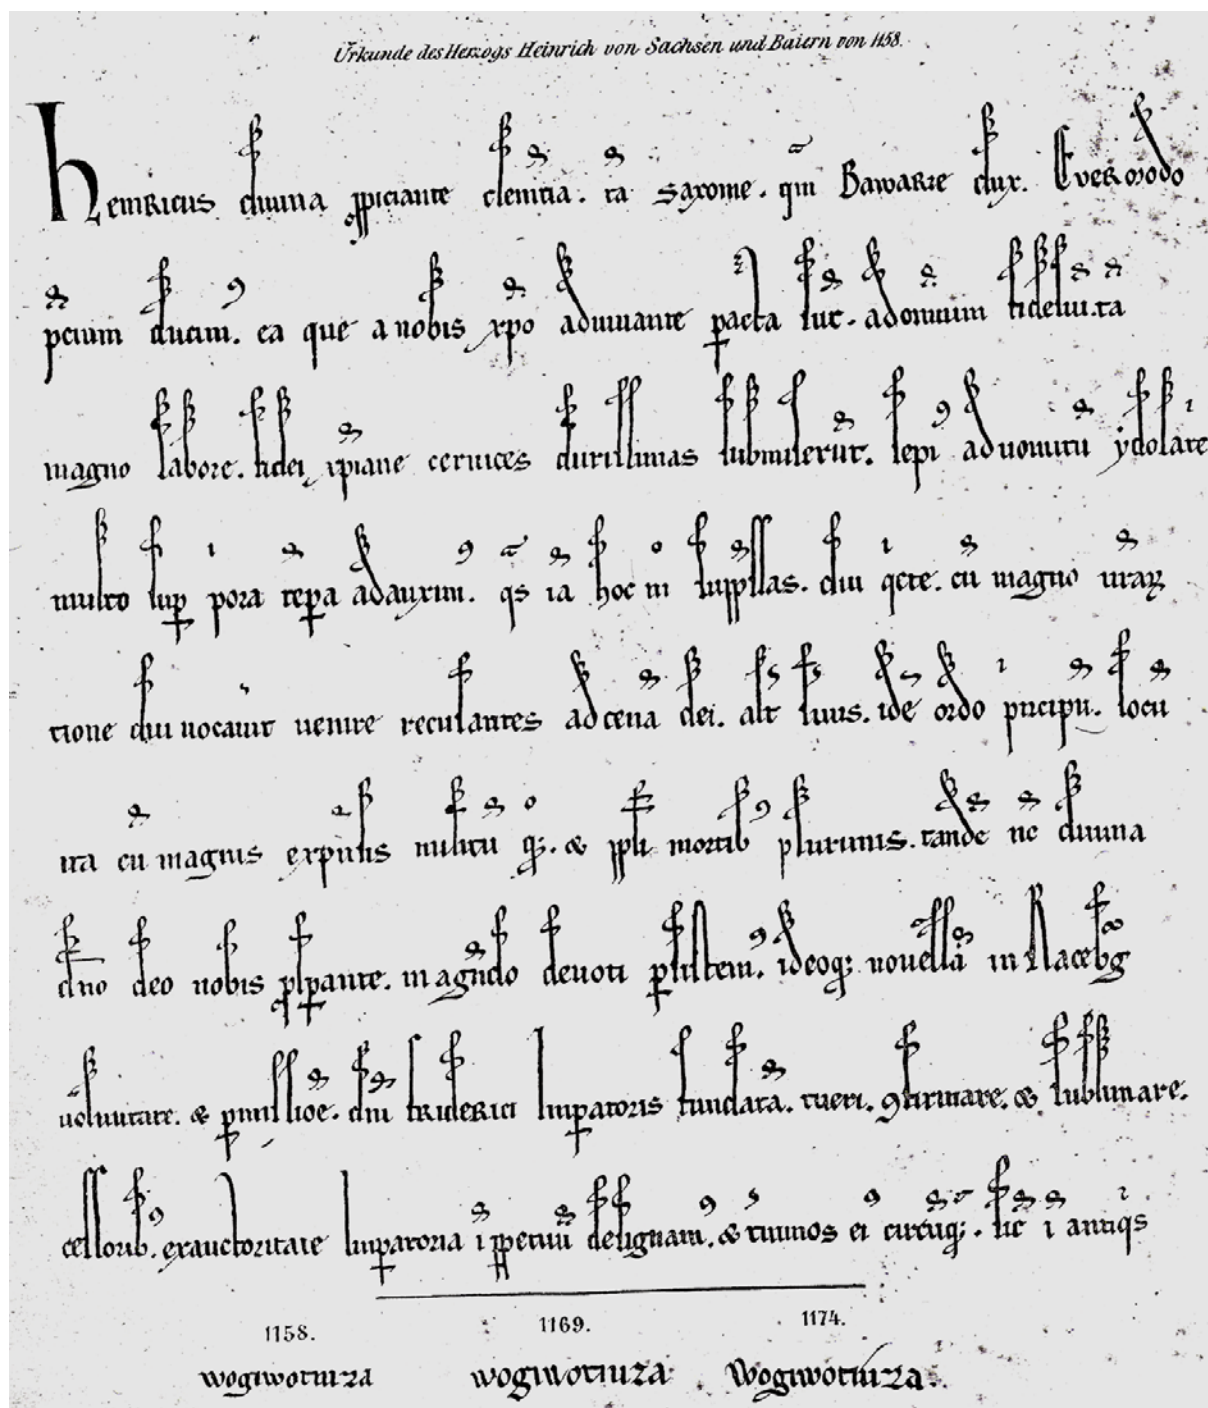 Urkunde des Herzogs Heinrich von Sachsen und Baiern von 1158.
Heinricus diuina ꝓpiciante clem̅tia. ta̅ Saxonie. qͣm Bawarie dux. Euermodo
ꝑpetuu̅ ducim⁹. ea que a nobis xp̅o adiuuante ꝑacta su̅t. ad om̅ium fideliu̅. ta̅
magno labore. fidei xp̅iane ceruices durissimas submiseru̅t. sepi⁹ ad uomitu̅ ydolatͥe
multo sup̲ pͥora te̅pora adauxim⁹. qͣs ia̅ hoc mͦ susp̅ssas. diu qͥete. cu̅ magno
tione diu uocauit uenire reculantes ad cena̅ dei. alt̾ suus. ide̅ ordo pͥncipu̅. locu̅
ita cu̅ magnis expulsis militu̅ q;. & ppl̅i mortib⁹ plurimis. tande̅ ne̅ diuina
d̅no deo nobis ꝓsꝑante. magn̅do deuoti ꝑsistem⁹. ideoq; nouella̅ in Racebg̅
uoluntate. & ꝑmissio̅e. dn̅i friderici Imꝑatoris fundata̅. tueri. ꝯfirmare. & sublimare.
cessorib⁹. ex auctoritate Imꝑatoria i̅ ꝑpetuu̅ designam⁹. & t̾minos ei⁹ circu̅q;. sic̅ i̅ antiqͥs
1158. 1169. 1174.
wogiwotinza wogiwotinza Wogiwotinza.